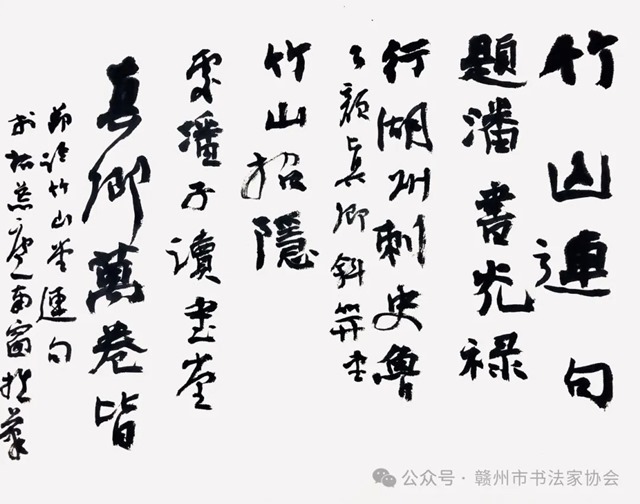 竹山連句
題潘書光祿
行湖州刺史魯
公顏真卿叙并書
竹山招隱
處潘子讀書堂
真卿萬卷皆
節臨竹山堂連句
南窗
公众号·赣州市书法家协会